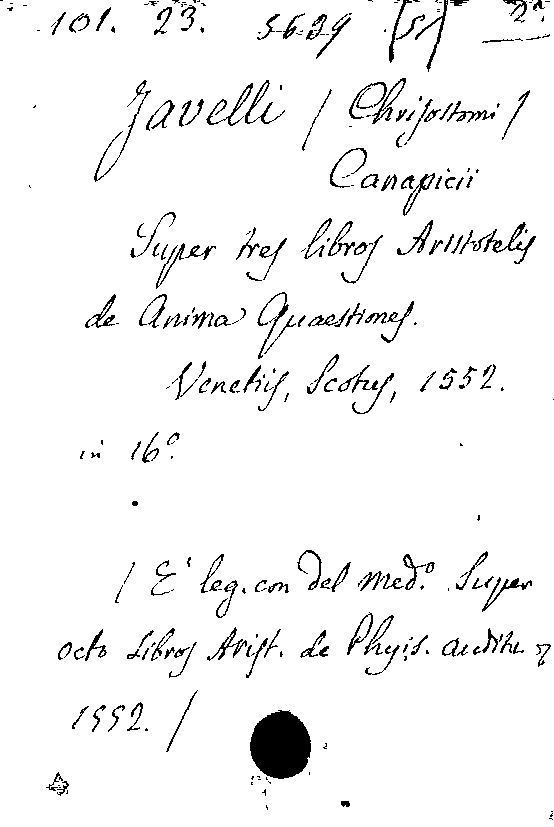 101. 23. 5639 2ª.
Javelli / Chrisostomi /
Canapicii
Super tres libros Aristotelis
de Anima Quaestiones.
Venetiis, Scotus, 1552.
in 16º.
/ E' leg. con del med.º Super
octo Libros Arist. de Phyis. auditu
1552. /